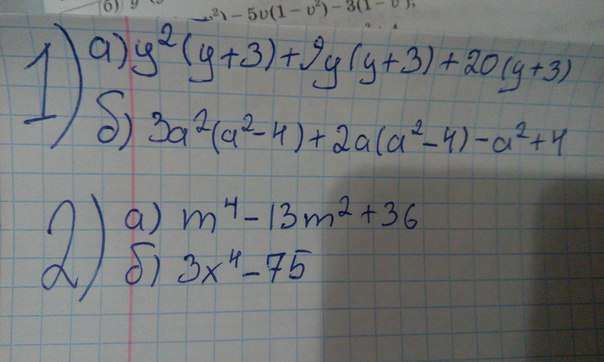 б)
²) − 5v(1 − v²) − 3(1 − v²);
1) а) y²(y+3)+9y(y+3)+20(y+3)
б) 3a²(a²−4)+2a(a²−4)−a²+4
2) а) m⁴−13m²+36
б) 3x⁴−75